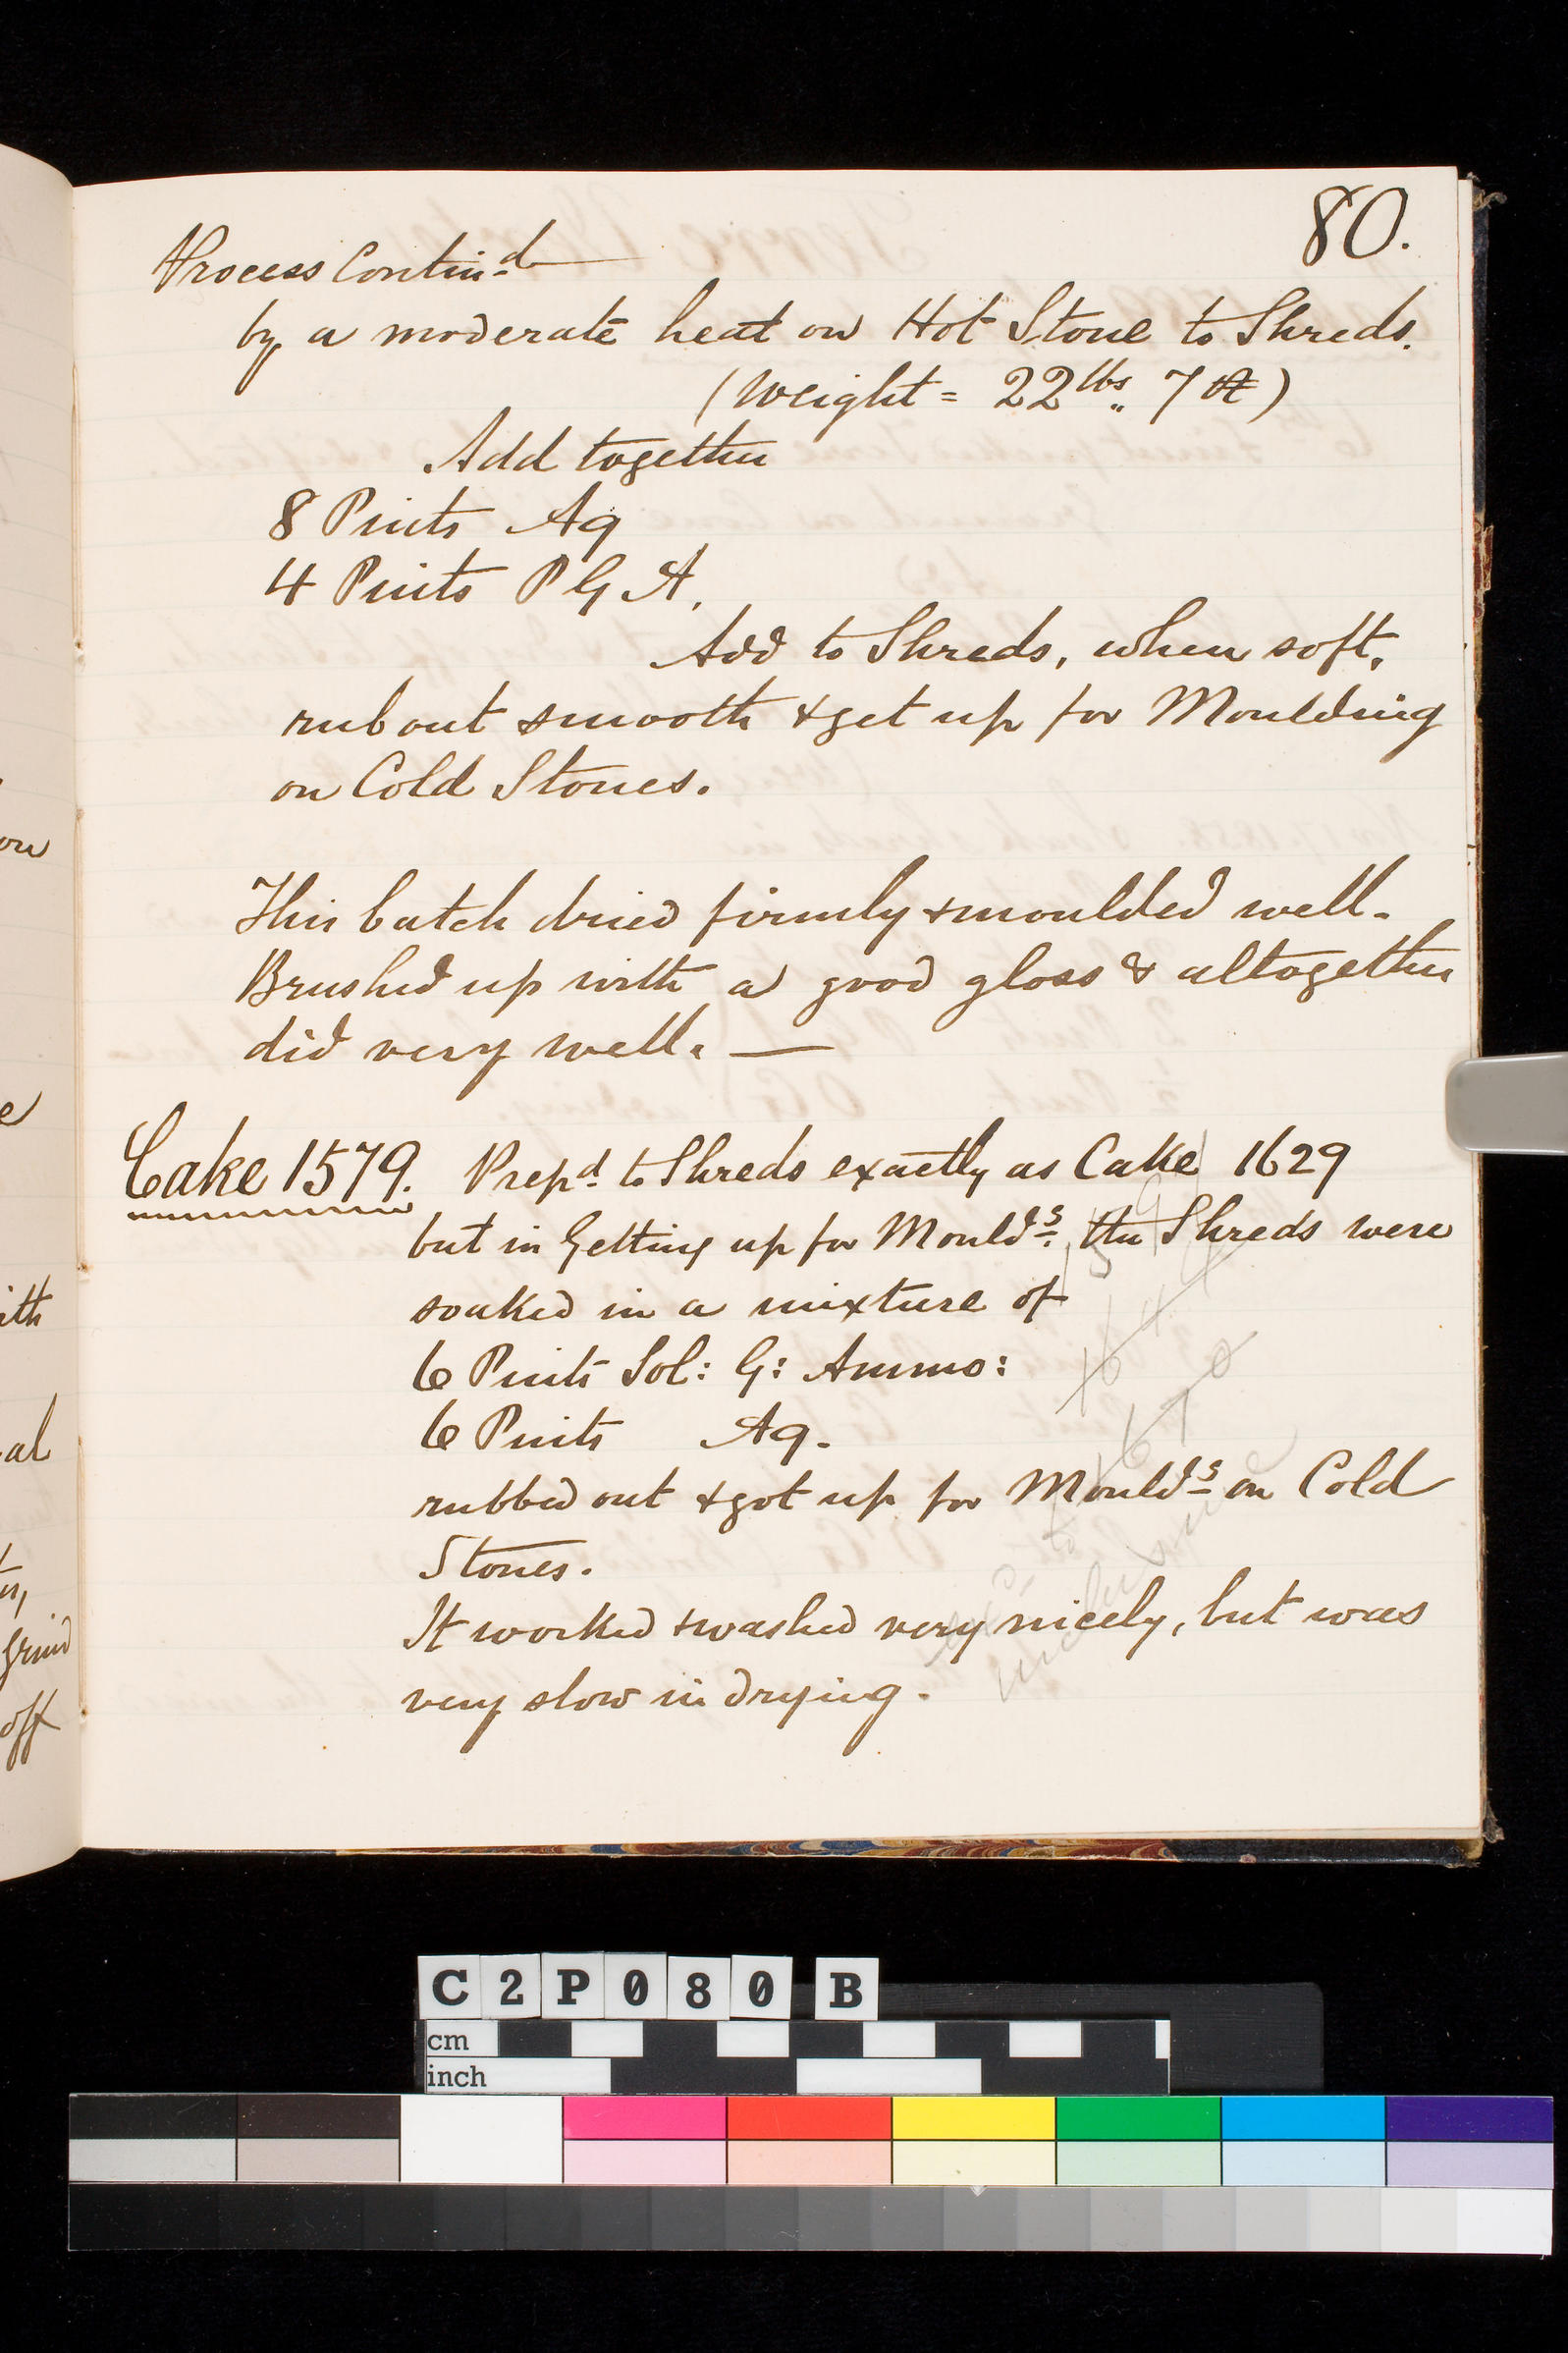 80.
Process Contin.d
by a moderate heat on Hot Stone to Shreds.
(Weight = 22 lbs.. 7 oz)
Add together
8 Pints Aq
4 Pints P G A.
Add to Shreds, when soft,
rub out smooth & get up for Moulding
on Cold Stones.
This batch dried firmly & moulded well.
Brushed up with a good gloss & altogether
did very well. —
Cake 1579. Prepd. to Shreds exactly as Cake 1629
but in Getting up for Moulds. the Shreds were
soaked in a mixture of
6 Pints Sol: G: Ammo:
6 Pints Aq.
rubbed out & got up for Moulds on Cold
Stones.
It worked & washed very nicely, but was
very slow in drying.
on
e
ith
al
grind
off
1670
C2P080 B
cm
inch